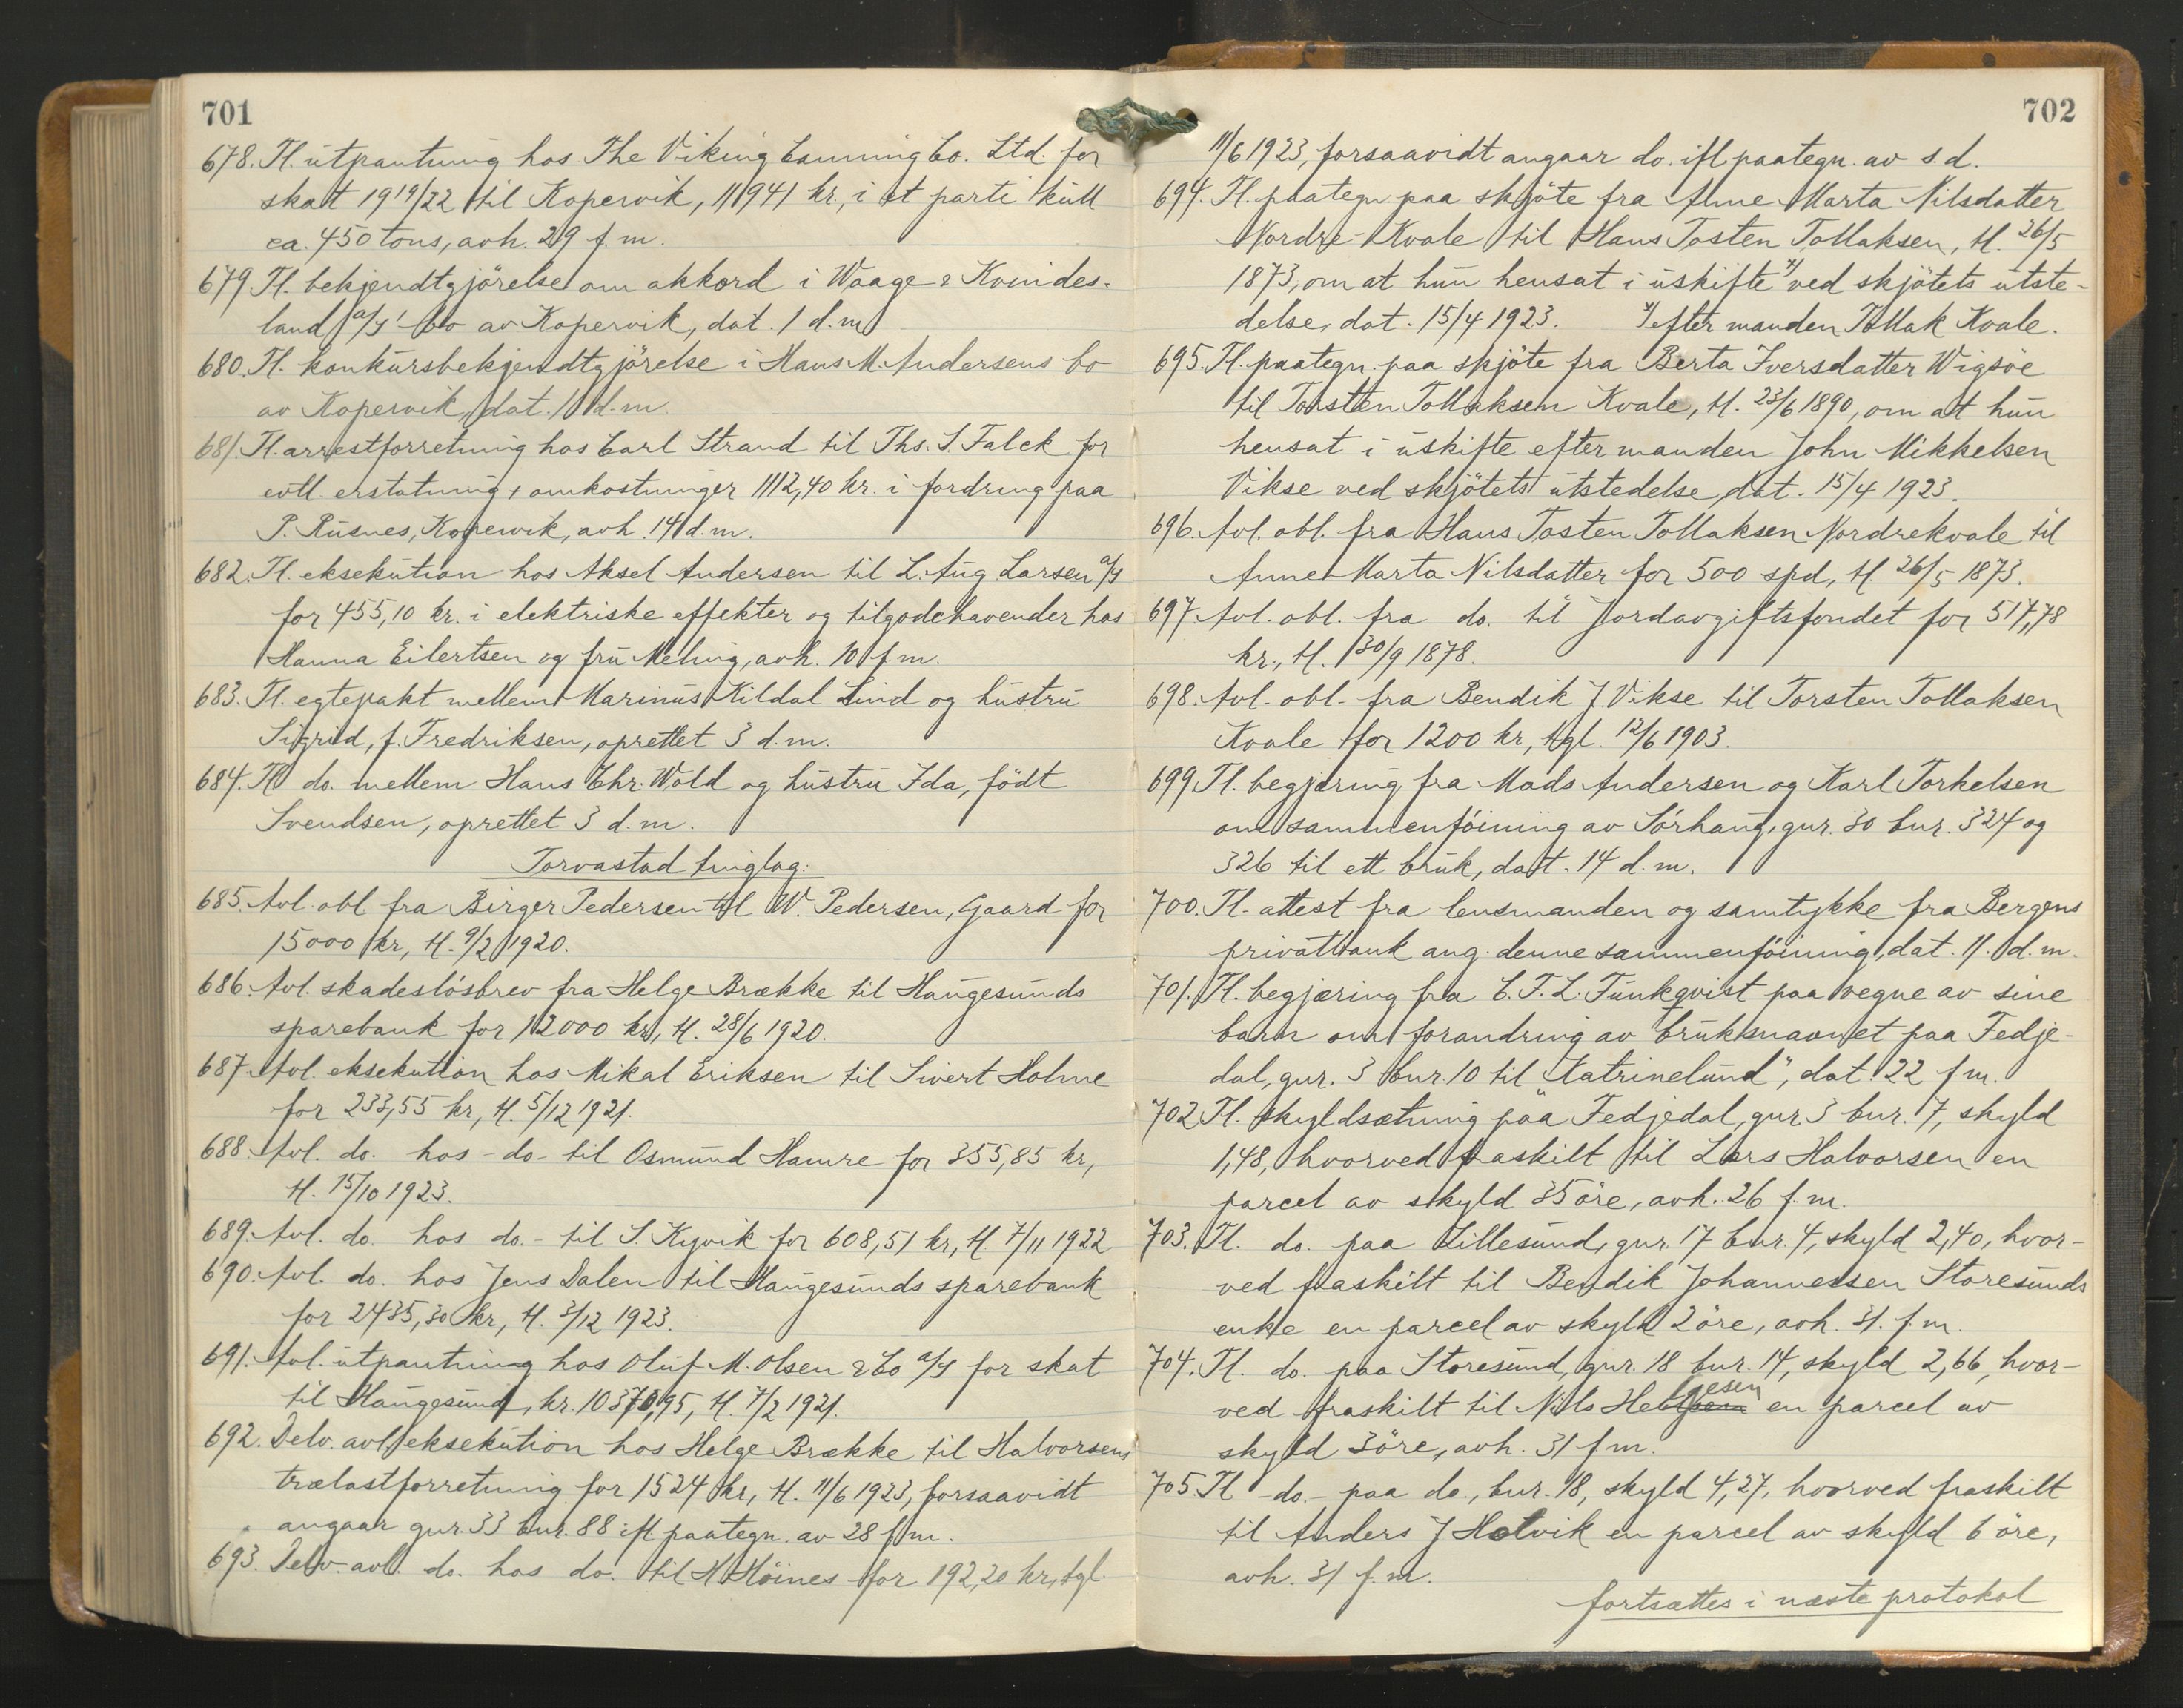 701
678. Tl. utpantning hos The Viking Canning Co. Ltd. for
skat 1919/22 til Kopervik, 11941 kr., i et parti kull
ca. 450 tons, avh. 29 f.m.
679. Tl. bekjendtgjörelse om akkord i Waage & Kvindes-
land a/s' bo av Kopervik, dat. 1 d.m.
680. Tl. konkursbekjendtgjörelse i Hans M. Andersens bo
av Kopervik, dat. 10 d.m.
681. Tl. arrestforretning hos Carl Strand til Ths. S. Falck for
evtl. erstatning + omkostninger 1112,40 kr. i fordring paa
P. Rusnes, Kopervik, avh. 14 d.m.
682. Tl. eksekution hos Aksel Andersen til L. Aug Larsen a/s
for 455,10 kr. i elektriske effekter og tilgodehavender hos
Hanna Eilertsen og fru Meling, avh. 10 f.m.
683. Tl. egtepakt mellem Marinus Kildal Lind og hustru
Sigrid, f. Fredriksen, oprettet 3 d.m.
684. Tl do. mellem Hans Chr. Wold og hustru Ida, födt
Svendsen, oprettet 3 d.m.
Torvastad tinglag:
685. Avl. obl fra Birger Pedersen til W. Pedersen, Gaard for
15000 kr, tl. 9/2 1920.
686. Avl. skadeslösbrev fra Helge Brække til Haugesunds
sparebank for 12000 kr, tl. 28/6 1920.
687. Avl. eksekution hos Mikal Eriksen til Sivert Holme
for 233,55 kr, tl. 5/12 1921.
688. Avl. do. hos - do - til Osmund Hamre for 355,85 kr,
tl. 15/10 1923.
689. Avl. do. hos do. - til S. Kyvik for 608,51 kr, tl. 7/11 1922
690. Avl. do. hos Jens Dalen til Haugesunds sparebank
for 2435,30 kr, tl. 3/12 1923.
691. Avl. utpantning hos Oluf M. Olsen & Co a/s for skat
til Haugesund, kr. 10370,95, tl. 7/2 1921.
692. Delv. avl. eksekution hos Helge Brække til Halvorsens
trælastforretning for 1524 kr, tl. 11/6 1923, forsaavidt
angaar gnr. 33 bnr. 88 ifl paategn. av 28 f.m.
693. Delv. avl. do. hos do. til H Höines for 192,20 kr, tgl.
702
11/6 1923, forsaavidt angaar do. ifl paategn. av s.d.
694. Tl. paategn paa skjöte fra Anne Marta Nilsdatter
Nordre-Kvale til Hans Tosten Tollaksen, tl. 26/5
1873, om at hun hensat i uskifte x) ved skjötets utste-
delse, dat. 15/4 1923. x) efter manden Tollak Kvale.
695. Tl. paategn. paa skjöte fra Berta Iversdatter Wigsöe
til Torsten Tollaksen Kvale, tl. 23/6 1890, om at hun
hensat i uskifte efter manden John Mikkelsen
Vikse ved skjötets utstedelse, dat. 15/4 1923.
696. Avl. obl. fra Hans Tosten Tollaksen Nordrekvale til
Anne Marta Nilsdatter for 500 spd, tl. 26/5 1873.
697. Avl. obl. fra do. til Jordavgiftsfondet for 517,78
kr., tl. 30/9 1878.
698. Avl. obl. fra Bendik J. Vikse til Torsten Tollaksen
Kvale for 1200 kr, tgl. 12/6 1903.
699. Tl. begjæring fra Mads Andersen og Karl Torkelsen
om sammenföining av Sörhaug, gnr. 30 bnr. 324 og
326 til ett bruk, dat. 14 d.m.
700. Tl. attest fra lensmanden og samtykke fra Bergens
privatbank ang. denne sammenföining, dat. 11. d.m.
701. Tl. begjæring fra C. F. L. Funkqvist paa vegne av sine
barn om forandring av bruksnavnet paa Fedje-
dal, gnr. 3 bnr. 10 til "Katrinelund", dat. 22 f.m.
702. Tl. skyldsætning paa Fedjedal, gnr 3 bnr. 7, skyld
1,48, hvorved fraskilt til Lars Halvorsen en
parcel av skyld 35 öre, avh. 26 f.m.
703. Tl. do. paa Lillesund, gnr. 17 bnr. 4, skyld 2,40, hvor-
ved fraskilt til Bendik Johannessen Storesunds
enke en parcel av skyld 2 öre, avh. 31. f.m.
704. Tl. do. paa Storesund, gnr. 18 bnr. 14, skyld 2,66, hvor-
ved fraskilt til Nils Helgesen en parcel av
skyld 3 öre, avh. 31 f.m.
705. Tl - do. - paa do., bnr. 18, skyld 4,27, hvorved fraskilt
til Anders J Hotvik en parcel av skyld 6 öre,
avh. 31 f.m.
fortsættes i næste protokol